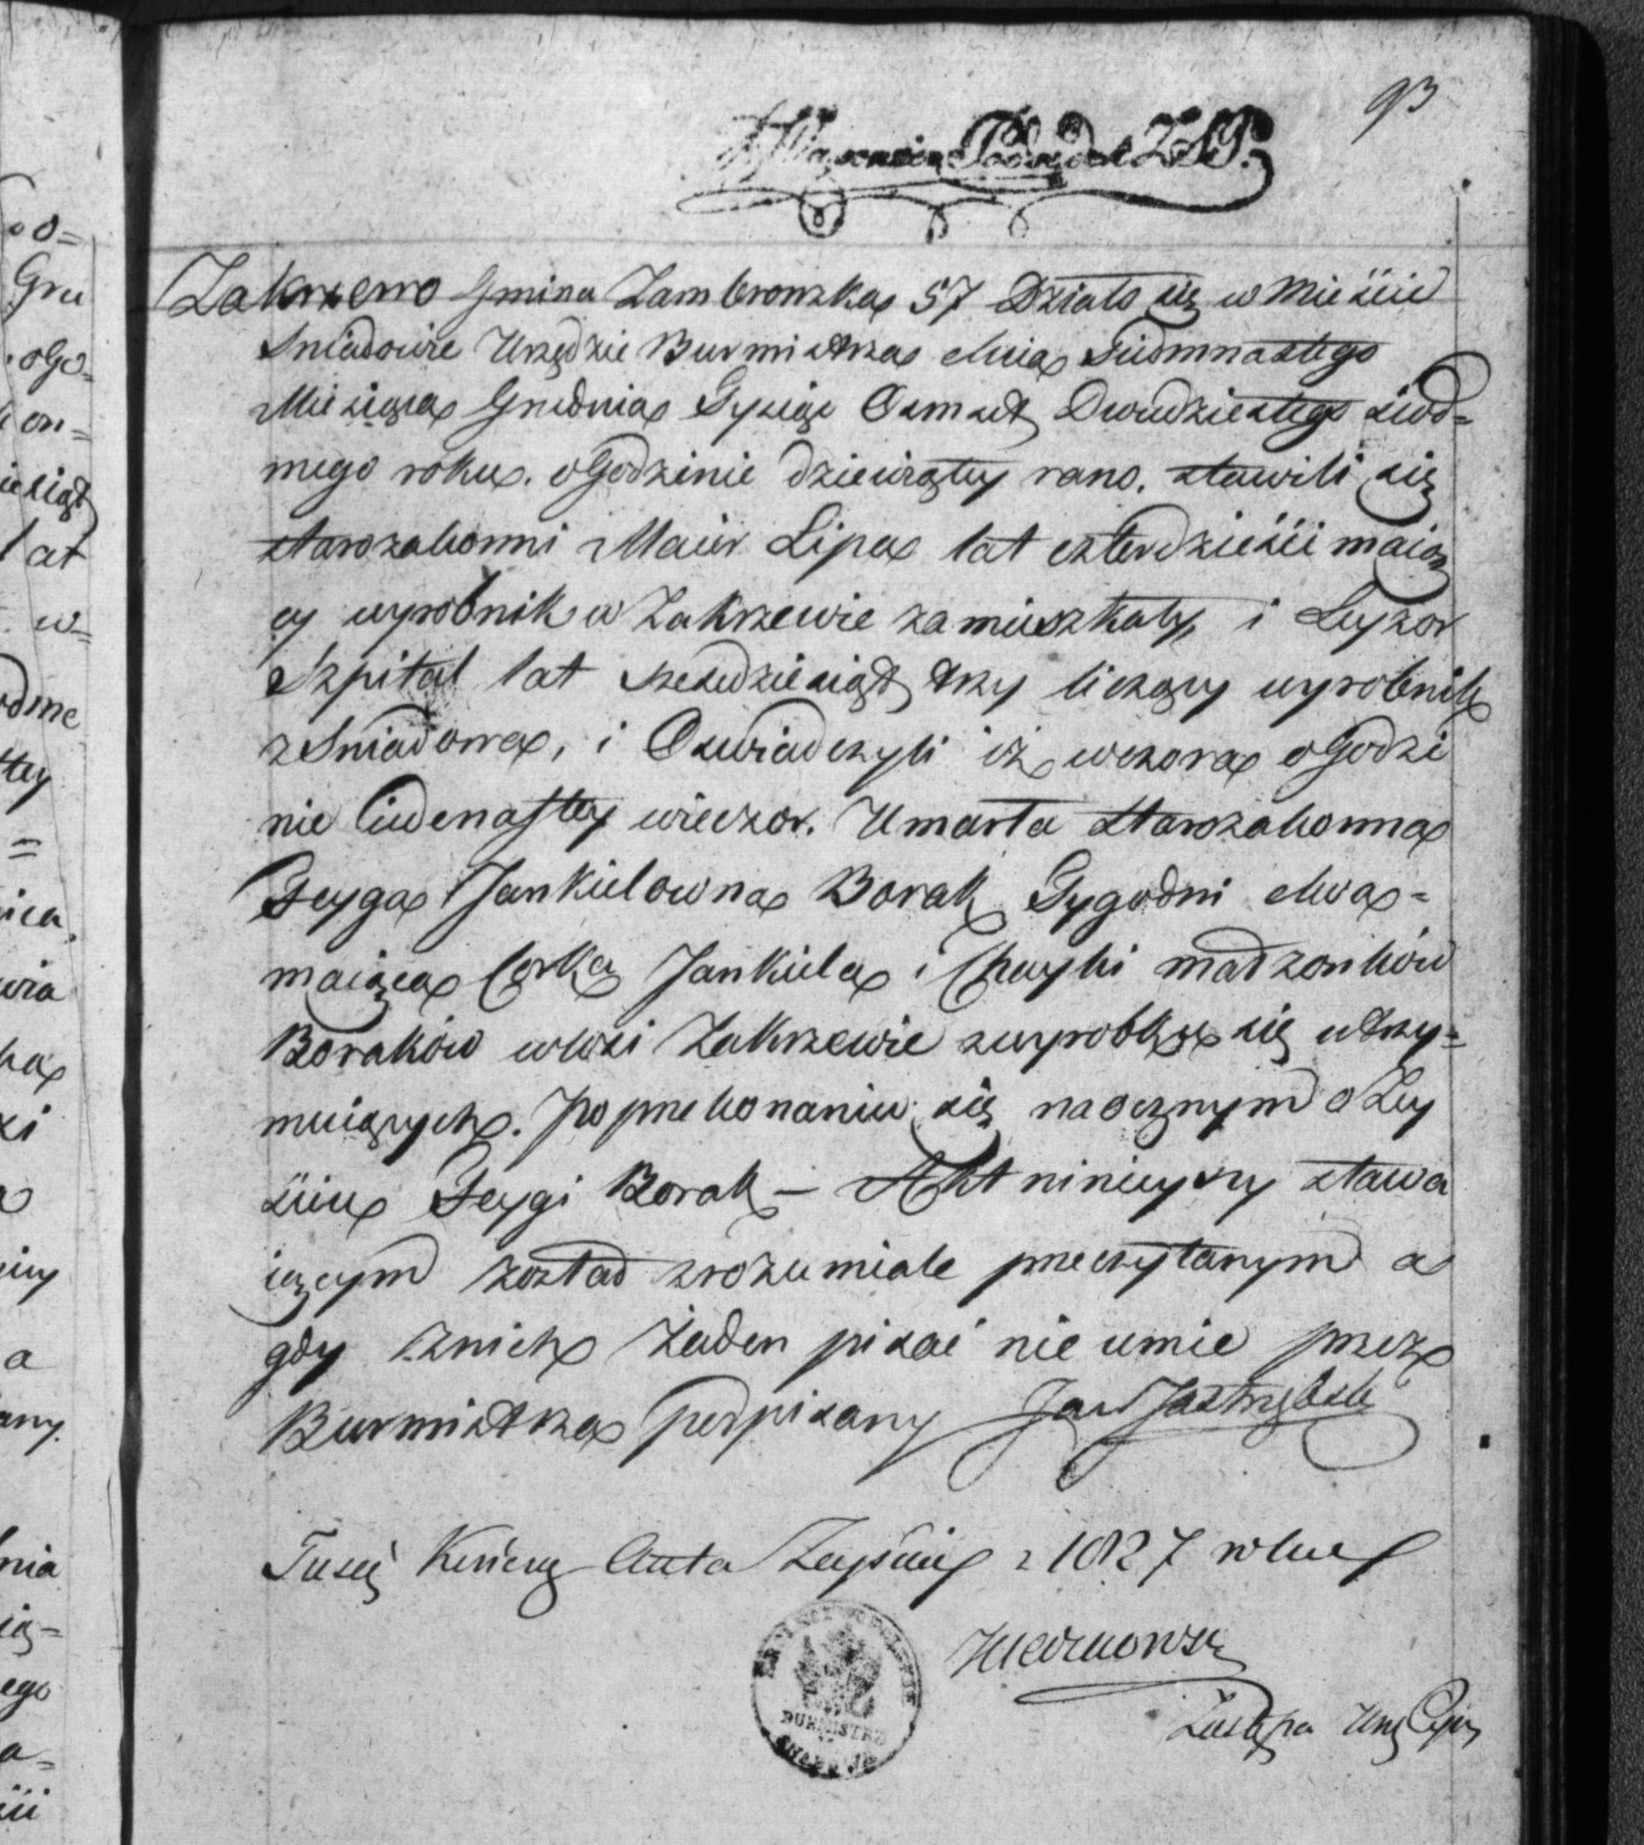 93
Zakrzewo Gmina Zambronzka 57 Działo się w Mieście
Sniadowie Urzędzie Burmistrza dnia Siudmnastego
Miesiąca Grudnia Tysiąc Osmset Dwudziestego siod=
mego roku. o Godzinie dziewiąty rano. stawili się
starozakonni Maier Lipa lat czterdzieści maią
cy wyrobnik w Zakrzewie zamieszkały, i Leyzor
Szpital lat szesedziesiąt trzy liczący wyrobnik
z Sniadowa, i Oswiadczyli iż wczora o Godzi
nie iedenastey wieczor. Umarła starozakonna
Feyga Jankielowna Borak Tygodni dwa=
maiąca Corka Jankiela i Chayki madzonków
Boraków w wsi Zakrzewie z wyrobku się utrzy=
muiących. Po przekonaniu się naocznym o Zey
ściu Feygi Borak – Akt ninieyszy stawa
iącym został zrozumiale przeczytanym a
gdy z nich żaden pisać nie umie przez
Burmistrza podpisany Jan Jastrzębski
Akta Zeyścia z 1827
BURMISTRZ